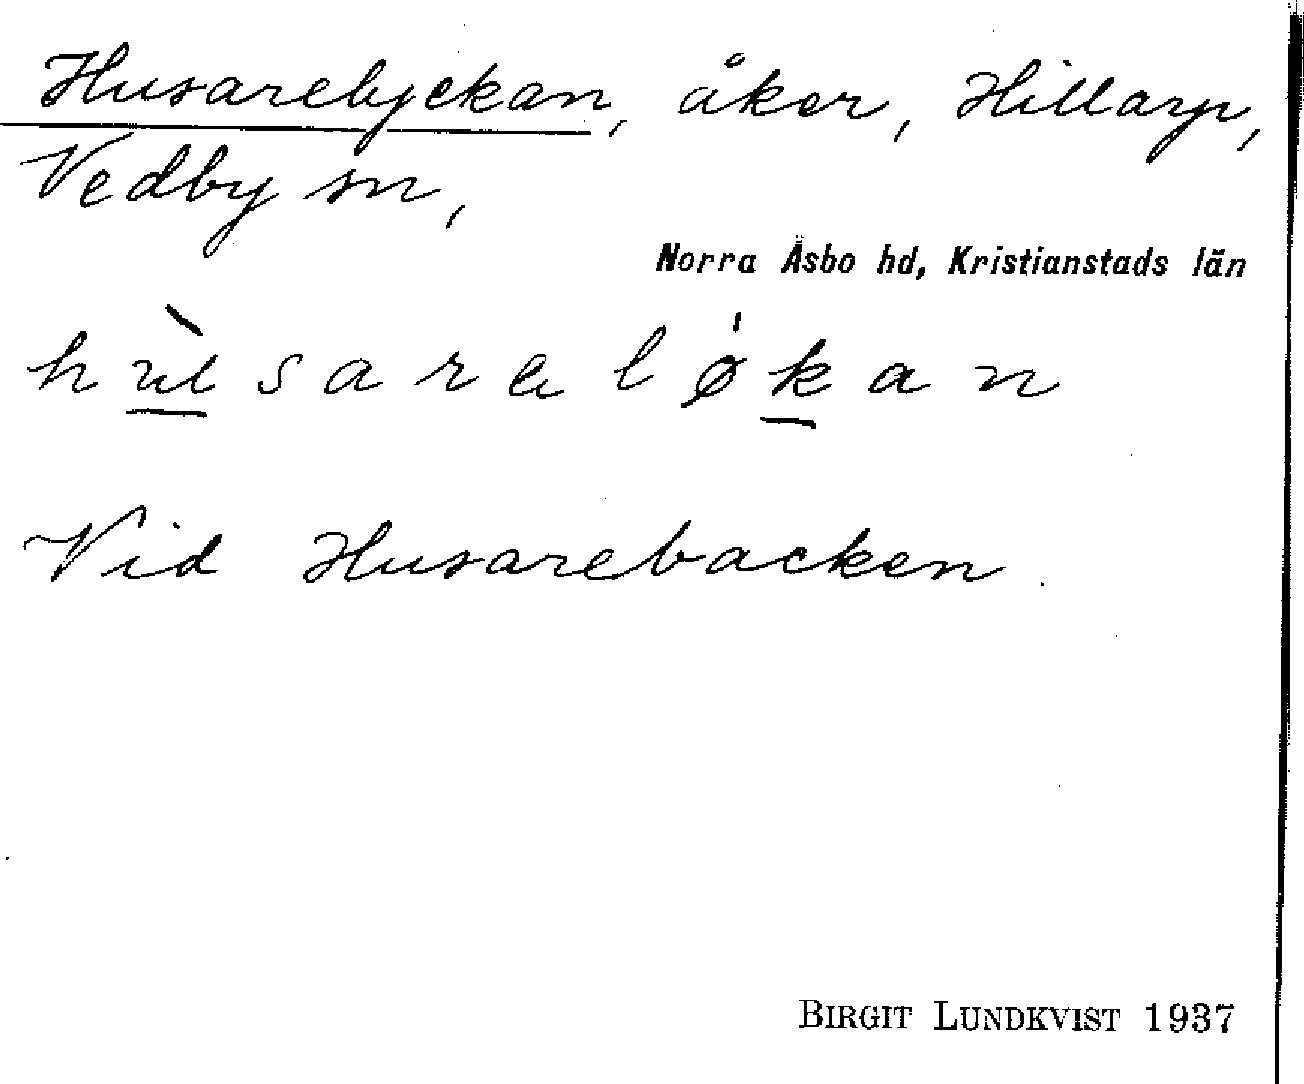 Husarelyckan, åker, Hillarp,
Vedby sn,
Norra Åsbo hd, Kristianstads län
Vid Husarebacken.
BIRGIT LUNDKVIST 1937